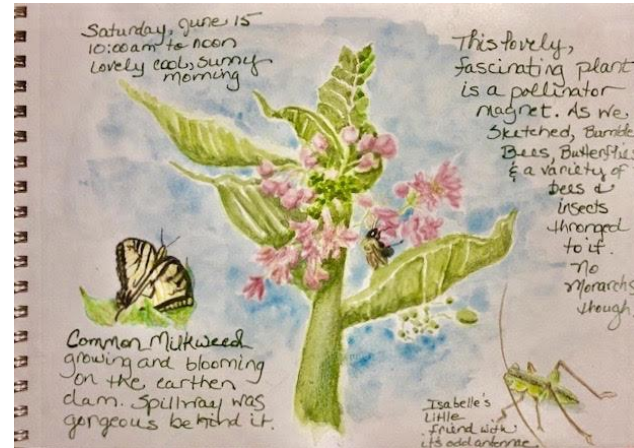 Saturday, June 15
10:00am to noon
Lovely cool, sunny
morning
This lovely,
fascinating plant
is a pollinator
magnet. As we
sketched, Bumble
Bees, Butterflies
& a variety of
bees &
insects
thronged
to it.
No
Monarchs
though.
Common Milkweed
growing and blooming
on the earthen
dam. Spillway was
gorgeous behind it.
Isabelle's
little
friend with
its odd antennae